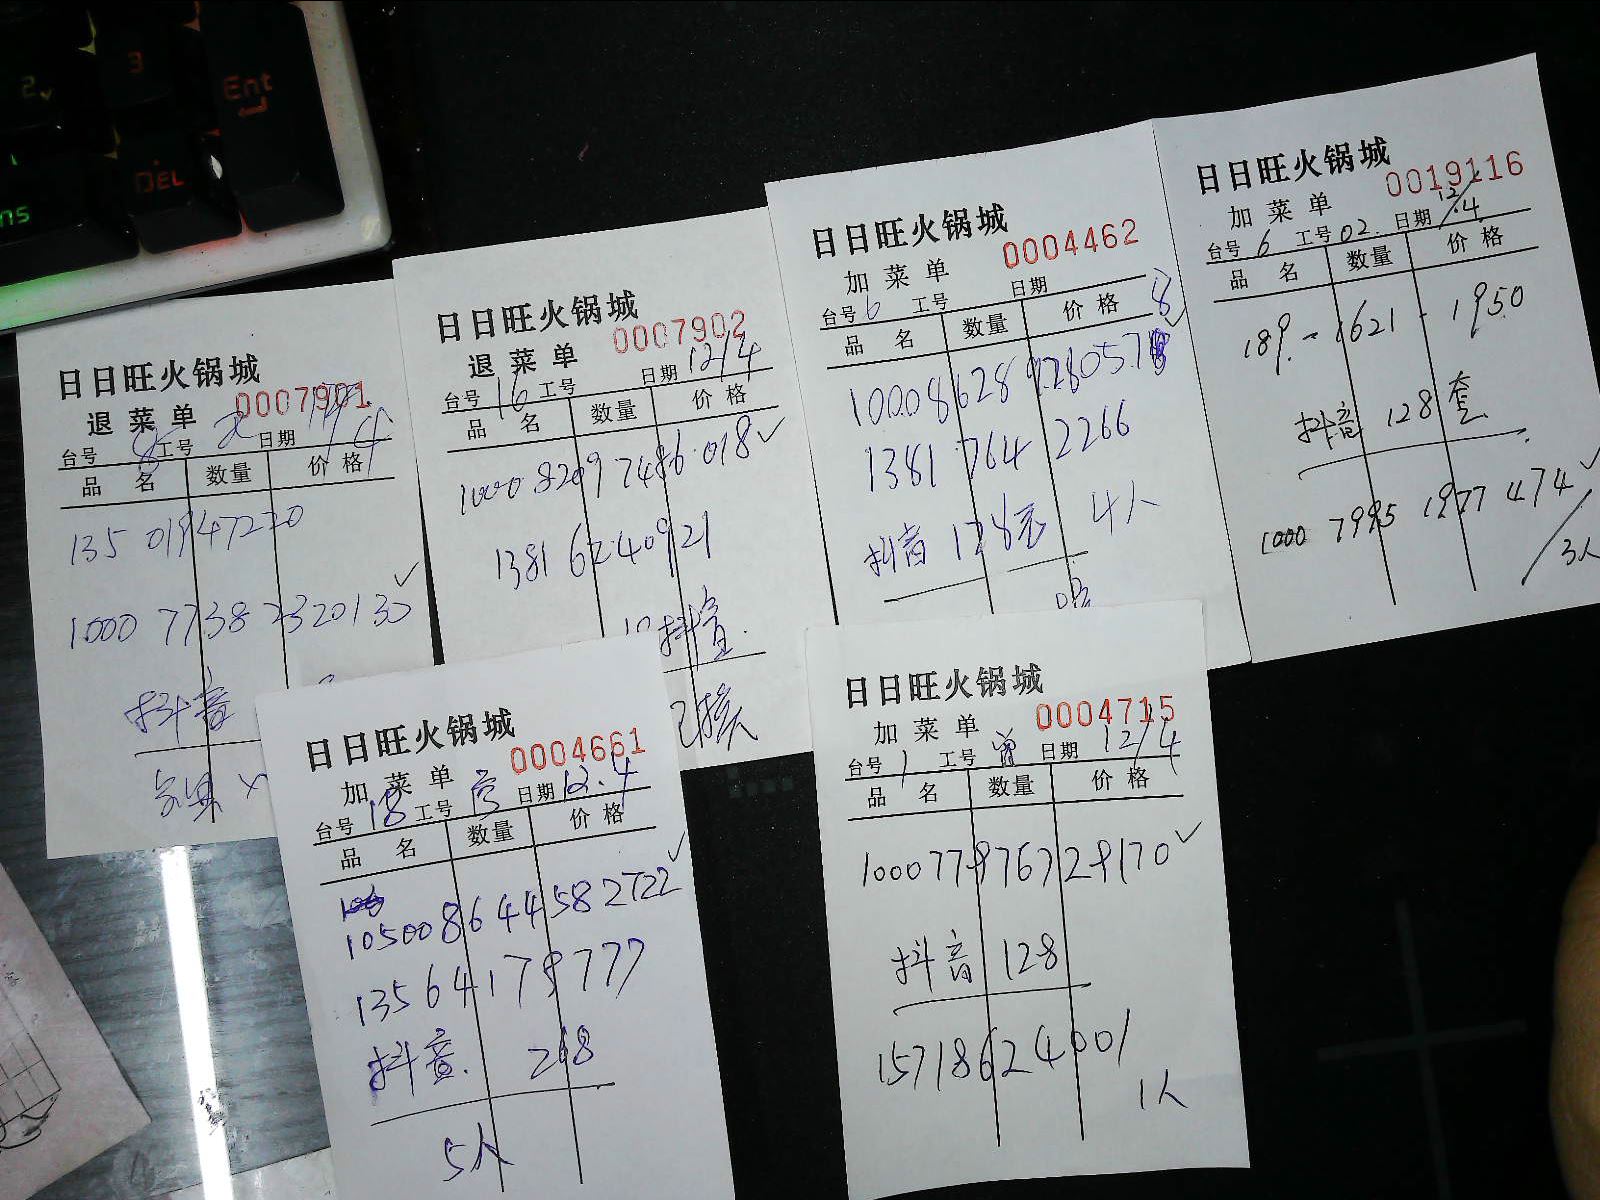 2
3
Ent
DEL
ns
日日旺火锅城
0007901
退菜单
台号 工号 日期
品名 数量 价格
135 01947220
1000 7738 2320130
抖音
日日旺火锅城
0007902
退菜单
台号 16 工号 日期 12/4
品名 数量 价格
1000 8209 7486·018
1381 6240921
抖音
已核
日日旺火锅城
0004462
加菜单
台号 6 工号 日期
品名 数量 价格
8
1381 764 2266
抖音 128元 4人
日日旺火锅城
0019116
加菜单
台号 6 工号 02. 日期 12/4
品名 数量 价格
189.-1621-1950
抖音 128套
1000 7995 1977 474
3人
日日旺火锅城
0004661
加菜单
台号 18 工号 日期 12.4
品名 数量 价格
105008644582722
13564179777
抖音. 268
5人
日日旺火锅城
0004715
加菜单
台号 1 工号 曾 日期 12/4
品名 数量 价格
100077976729170
抖音 128
15718624001
1人